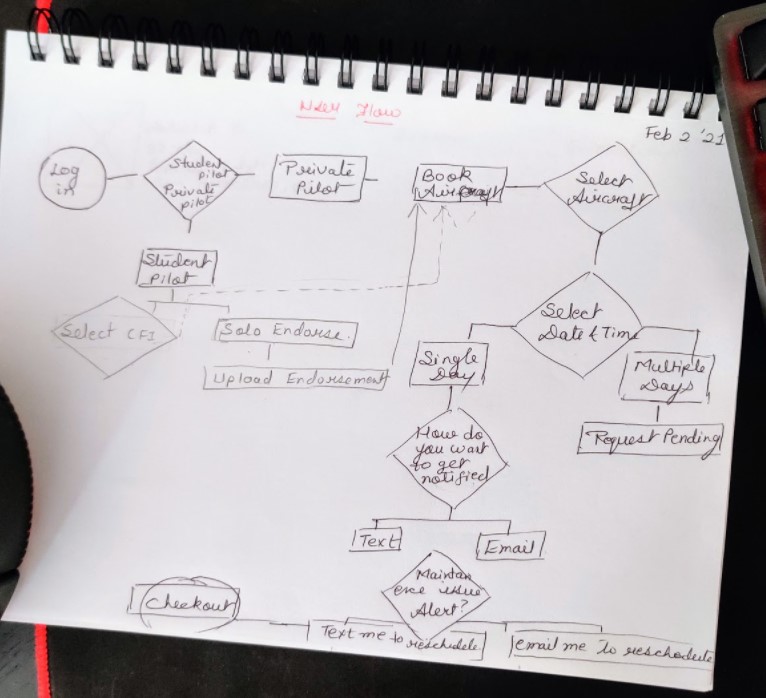 User Flow
Feb 2 '21
Log
in
Student
pilot
Private
pilot
Private
Pilot
Book
Aircraft
Select
Aircraft
Student
Pilot
Select CFI
Solo Endorse.
Upload Endorsement
Select
Date & Time
Single
Day
Multiple
Days
Request Pending
How do
you want
to get
notified
Text
Email
Maintan
ence issue
Alert?
Checkout
Text me to reschedule
email me to reschedule